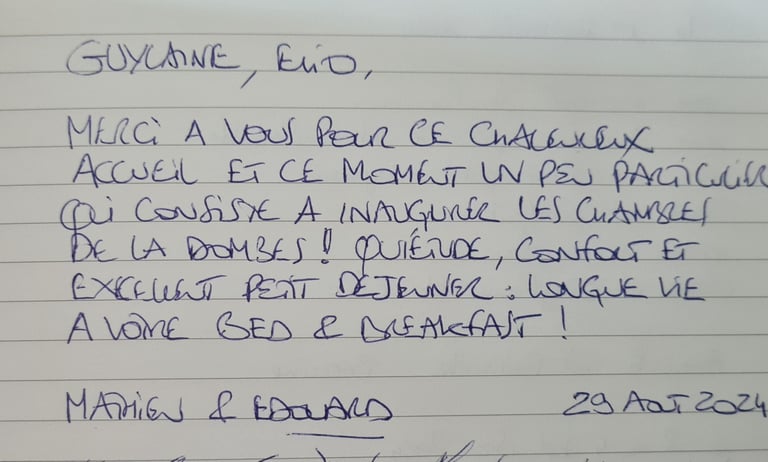 GUYLAINE, ELIO,
MERCI A VOUS POUR CE CHALEUREUX
ACCUEIL ET CE MOMENT UN PEU PARTICULIER
QUI CONSISTE A INAUGURER LES CHAMBRES
DE LA DOMBES ! QUIÉTUDE, CONFORT ET
EXCELLENT PETIT DÉJEUNER : LONGUE VIE
A VOTRE BED & BREAKFAST !
MATHIEU & EDOUARD 29 AOUT 2024